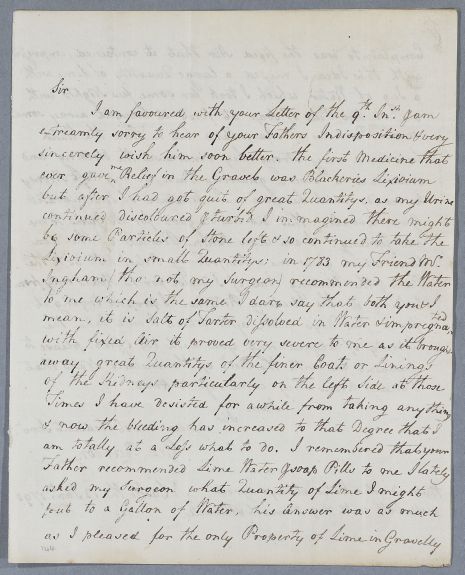 Sir
I am favoured with your Letter of the 9th Inst & am
extreamly sorry to hear of your Fathers Indisposition & very
sincerely wish him soon better. the first Medicine that
ever gave Relief in the Gravel was Blackeries Lixivium
but after I had got quit of great Quantitys, as my Urine
continued discoloured & turbid I immagined there might
be some Particles of Stone left & so continued to take the
Lixivium in small Quantitys: in 1783 my Friend Mr.
Ingham (tho not my Surgeon) recommended the Water
to me which is the same I dare say that both you & I
mean, it is Salt of Tarter dissolved in Water & impregnated
with fixed Air it proved very severe to me as it brought
away great Quantitys of the finer Coats or Linings
of the Kidneys particularly on the left Side at those
Times I have desisted for awhile from taking any thing
& now the bleeding has increased to that Degree that I
am totally at a Loss what to do. I remembered that your
Father recommended Lime Water & soap Pills to me I lately
asked my Surgeon what Quantity of Lime I might
put to a Gallon of Water, his Answer was as much
as I pleased for the only Property of Lime in Gravelly